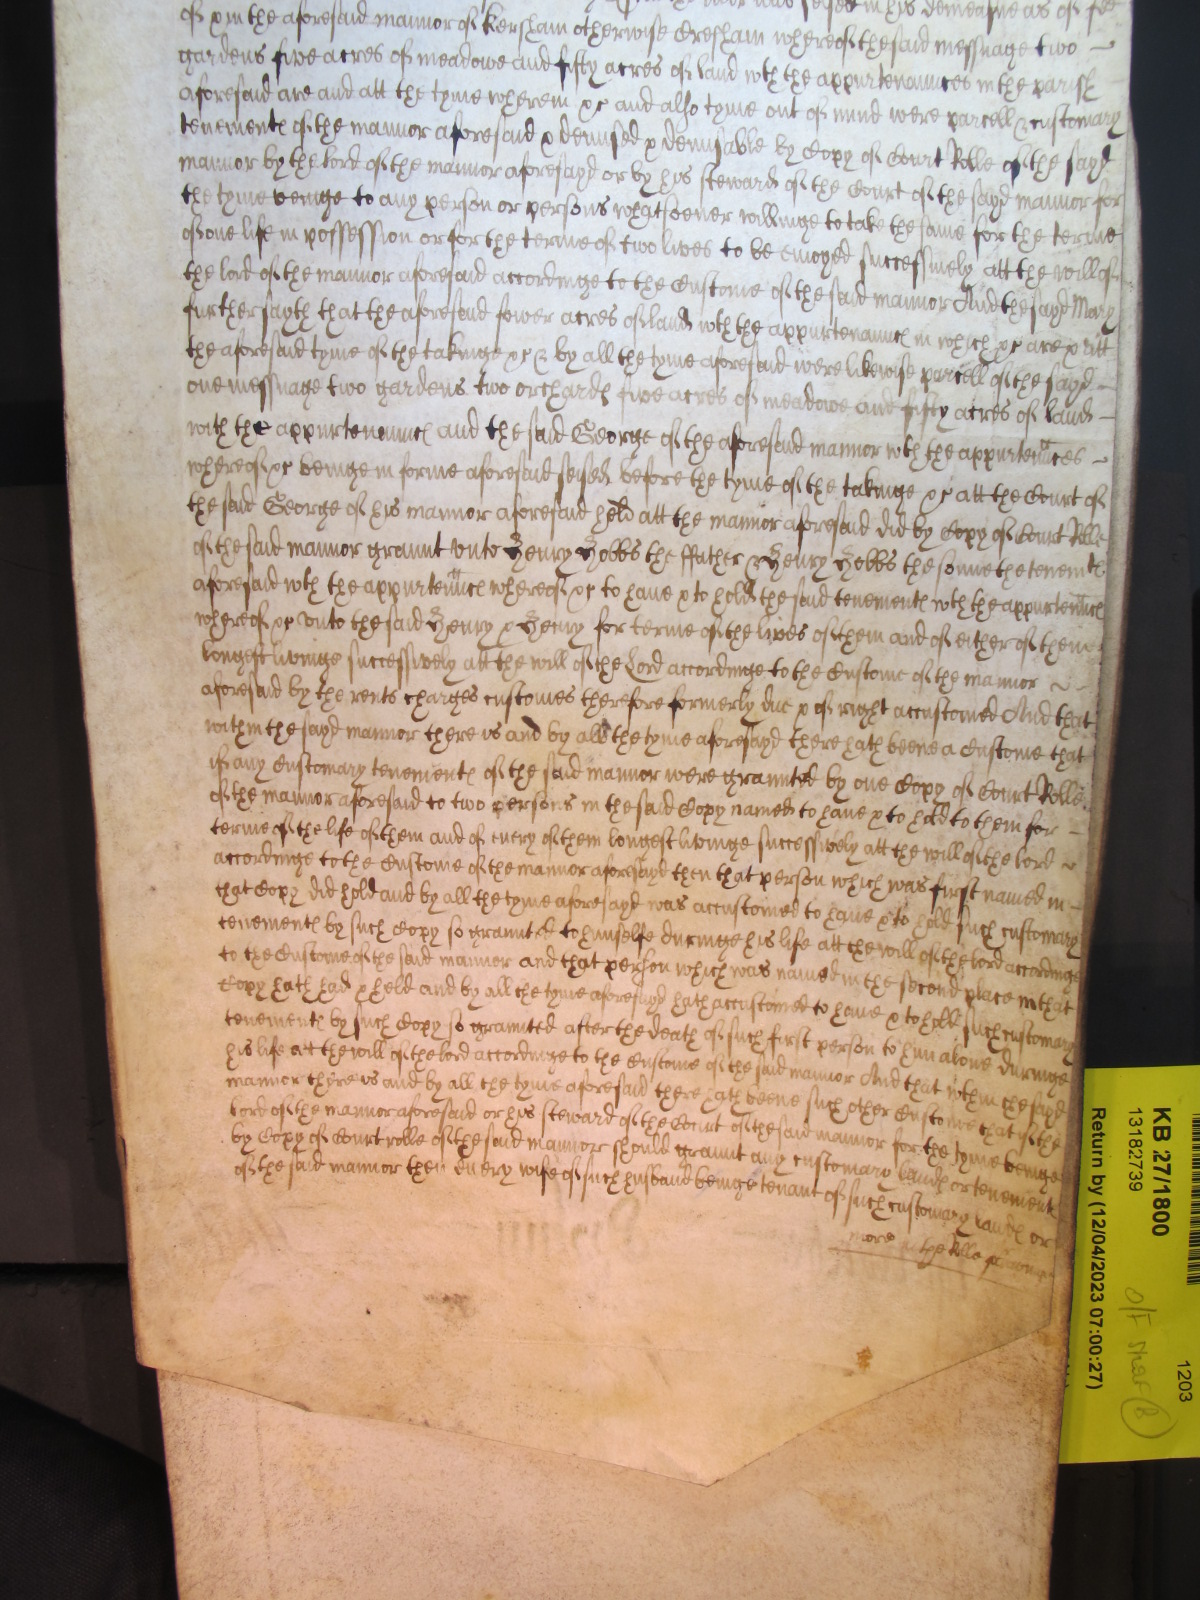 seised in his demeasne as of fee
of & in the aforesaid mannor of Kersham otherwise Cresham whereof the said messuage two
gardens five acres of meadowe and fifty acres of land wth the appurtenaunces in the parish
aforesaid are and att the tyme wherein &c and also tyme out of mind were parcell & customary
tenementℓ of the mannor aforesaid & demised & demisable by Copy of Court Rolle of the sayd
mannor by the lord of the mannor aforesayd or by his steward of the Court of the sayd mannor for
the tyme beinge to any person or persons whatsoever willinge to take the same for the terme
of one life in possession or for the terme of two lives to be enioyed successively att the will of
the lord of the mannor aforesaid accordinge to the Custome of the said mannor And the sayd Mary
further sayth that the aforesaid fower acres of land wth the appurtenauncℓ in which &c are & att
the aforesaid tyme of the takinge &c & by all the tyme aforesaid were likewise parcell of the sayd
one messuage two gardens two orchardℓ five acres of meadowe and fifty acres of land
with the appurtenauncℓ and the said George of the aforesaid mannor wth the appurtenn̄ces
whereof &c beinge in forme aforesaid seised before the tyme of the takinge &c att the Court of
the said George of his mannor aforesaid held att the mannor aforesaid did by Copy of Court Rolle
of the said mannor graunt vnto Henry Hobbs the ffather & Henry Hobbs the sonne the tenemtℓ
aforesaid wth the appurtenn̄cℓ whereof &c to have & to hold the said tenementℓ wth the appurtenn̄cℓ
whereof &c vnto the said Henry & Henry for terme of the lives of them and of either of them
longest livinge successively att the will of the Lord accordinge to the Custome of the mannor
aforesaid by the rents charges customes therefore formerly due & of right accustomed And that
within the sayd mannor there is and by all the tyme aforesayd there hath beene a Custome that
if any Customary tenementℓ of the said mannor were graunted by one Copy of Court Rolle
of the mannor aforesaid to two persons in the said Copy named to have & to hold to them for
terme of the life of them and of every of them longest livinge successively att the will of the lord
accordinge to the Custome of the mannor aforesayd then that person which was first named in
that Copy did hold and by all the tyme aforesayd was accustomed to have & to hold such customary
tenementℓ by such Copy so graunted to himselfe duringe his life att the will of the lord accordinge
to the Custome of the said mannor and that person which was named in the second place in that
Copy hath had & held and by all the tyme aforesayd hath accustomed to have & to hold such customary
tenementℓ by such Copy so graunted after the death of such first person to him alone duringe
his life att the will of the lord accordinge to the Custome of the said mannor And that wthin the sayd
mannor there is and by all the tyme aforesaid there hath beene such other Custome that if the
lord of the mannor aforesaid or his steward of the Court of the said mannor for the tyme beinge
by Copy of Court rolle of the said mannor should graunt any customary landℓ or tenementℓ
of the said mannor then every wife of such husband beinge tenant of such customary landℓ or
more
KB 27/1800
13182739
Return by (12/04/2023 07:00:27)
1203